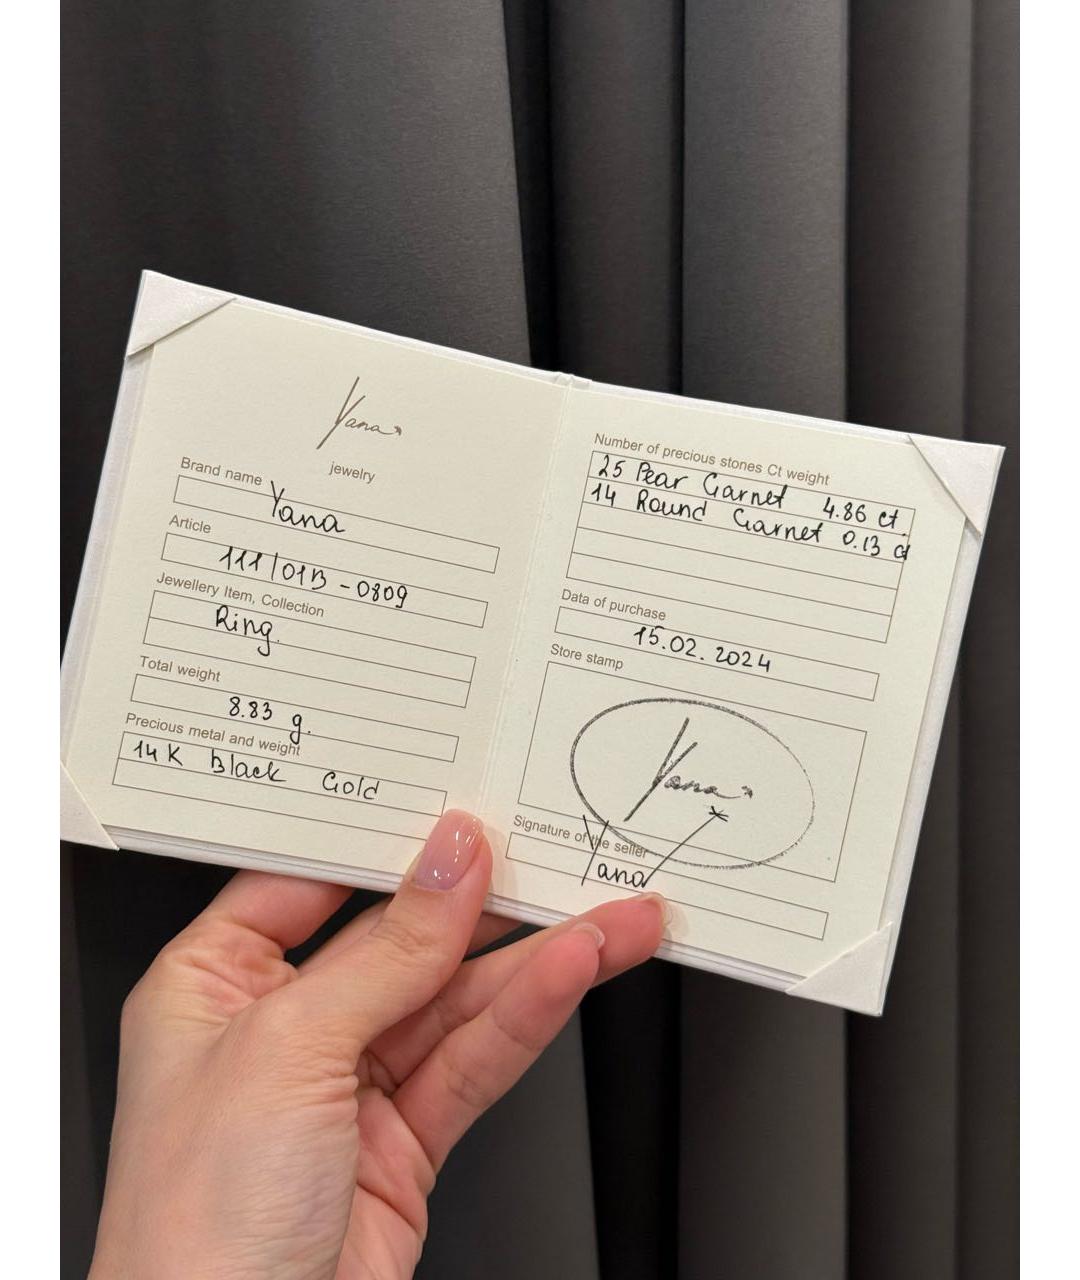 Yana
jewelry
Brand name
Yana
Article
111/01B-0809
Jewellery Item, Collection
Ring.
Total weight
8.83 g.
Precious metal and weight
14K Black Gold
Number of precious stones Ct weight
25 Pear Garnet 4.86 ct.
14 Round Garnet 0.13 ct
Data of purchase
15.02.2024
Store stamp
Yana
Signature of the seller
Yana